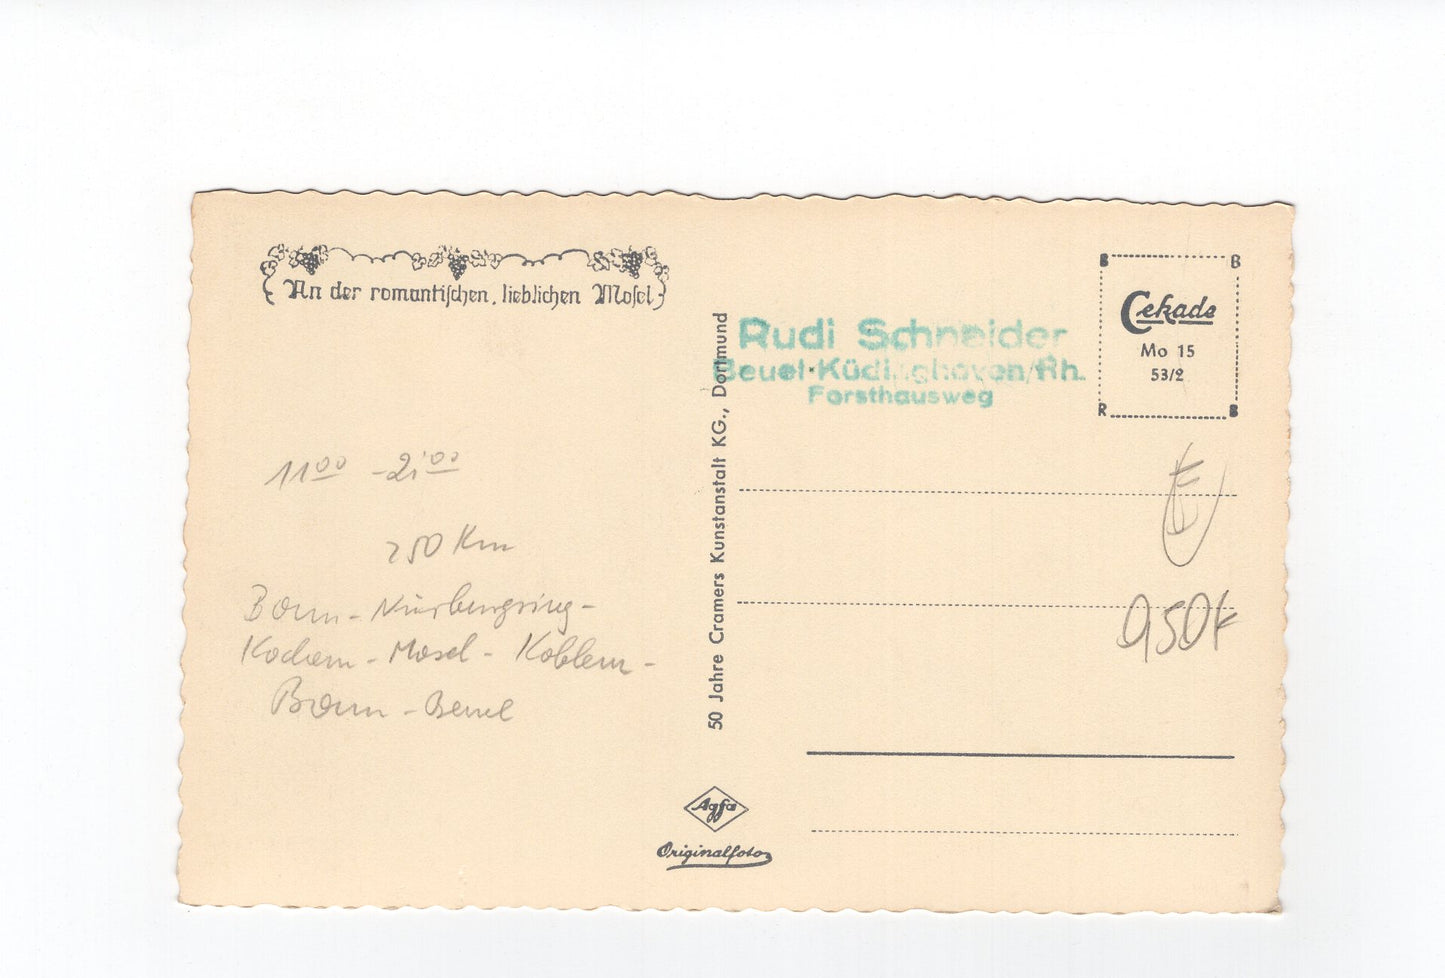 An der romantischen, lieblichen Mosel
11⁰⁰ - 21⁰⁰
250 Km
Bonn - Nürburgring -
Kochem - Mosel - Koblenz -
Bonn - Beuel
50 Jahre Cramers Kunstanstalt KG., Dortmund
Agfa
Originalfoto
Rudi Schneider
Beuel-Küdinghoven/Rh.
Forsthausweg
B B
Cekade
Mo 15
53/2
R B